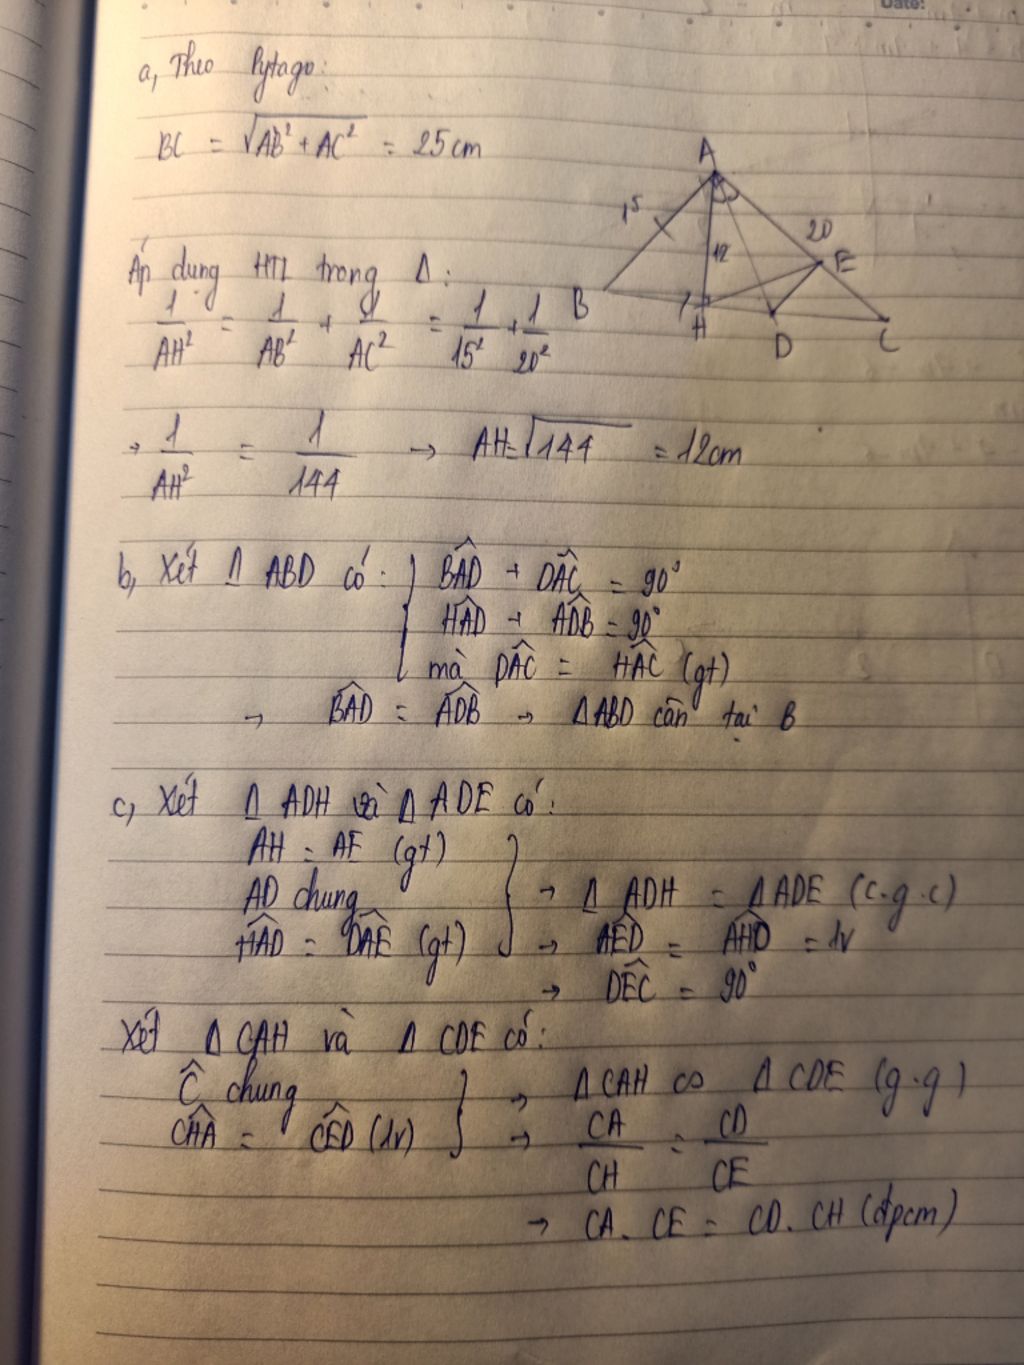 Date:
a, Theo Pytago:
BC = √AB² + AC² = 25cm
A
15
20
12
E
B
H
D
C
Áp dụng HTL trong Δ:
1/AH² = 1/AB² + 1/AC² = 1/15² + 1/20²
→ 1/AH² = 1/144 → AH = √144 = 12cm
b, Xét Δ ABD có: { BAD̂ + DAĈ = 90°
HAD̂ + ADB̂ = 90°
mà DAĈ = HAĈ (gt)
→ BAD̂ = ADB̂ → ΔABD cân tại B
c, Xét Δ ADH và Δ ADE có:
AH = AE (gt)
AD chung
HAD̂ = DAÊ (gt)
} → Δ ADH = ΔADE (c.g.c)
→ AED̂ = AHD̂ = 1v
→ DEĈ = 90°
Xét Δ CAH và Δ CDE có:
Ĉ chung
CHÂ = CED̂ (1v)
} → ΔCAH ∽ ΔCDE (g.g)
→ CA/CH = CD/CE
→ CA. CE = CD. CH (đpcm)